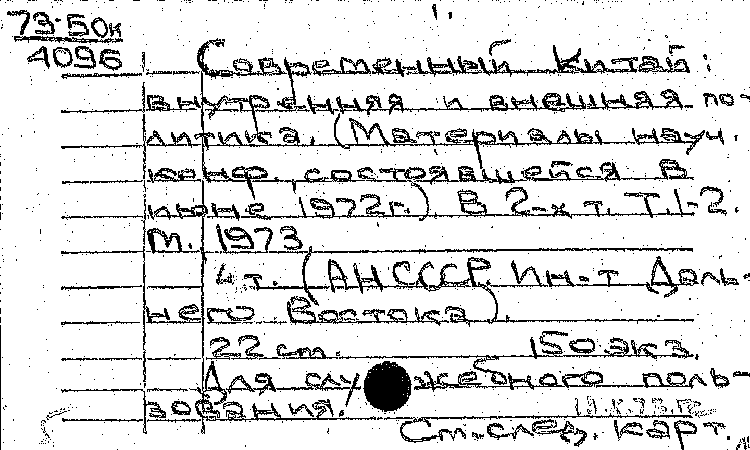 1.
73-50к
4096
Современный Китай:
внутренняя и внешняя по-
литика. (Материалы науч.
конф., состоявшейся в
июне 1972г.) В 2-х т. Т.1-2.
М., 1973.
т. (АН СССР. Ин-т Даль-
него Востока).
22 см. 150 экз.
Для служебного поль-
зования.
См. след. карт.